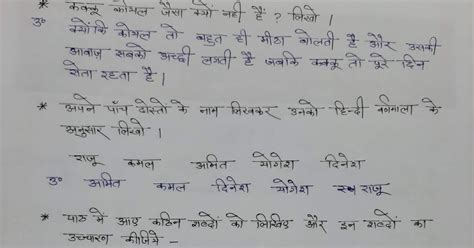 * कक्कू कोयल जैसा क्यों नहीं हैं ? लिखो ।
उ० क्योंकि कोयल तो बहुत ही मीठा बोलती है और उसकी
आवाज़ सबको अच्छी लगती है जबकि कक्कू तो पूरे दिन
रोता रहता है ।
* अपने पाँच दोस्तों के नाम लिखकर उनको हिन्दी वर्णमाला के
अनुसार लिखो ।
राजू कमल अमित योगेश दिनेश
उ० अमित कमल दिनेश योगेश राजू
* पाठ में आए कठिन शब्दों को लिखिए और इन शब्दों का
उच्चारण कीजिये -